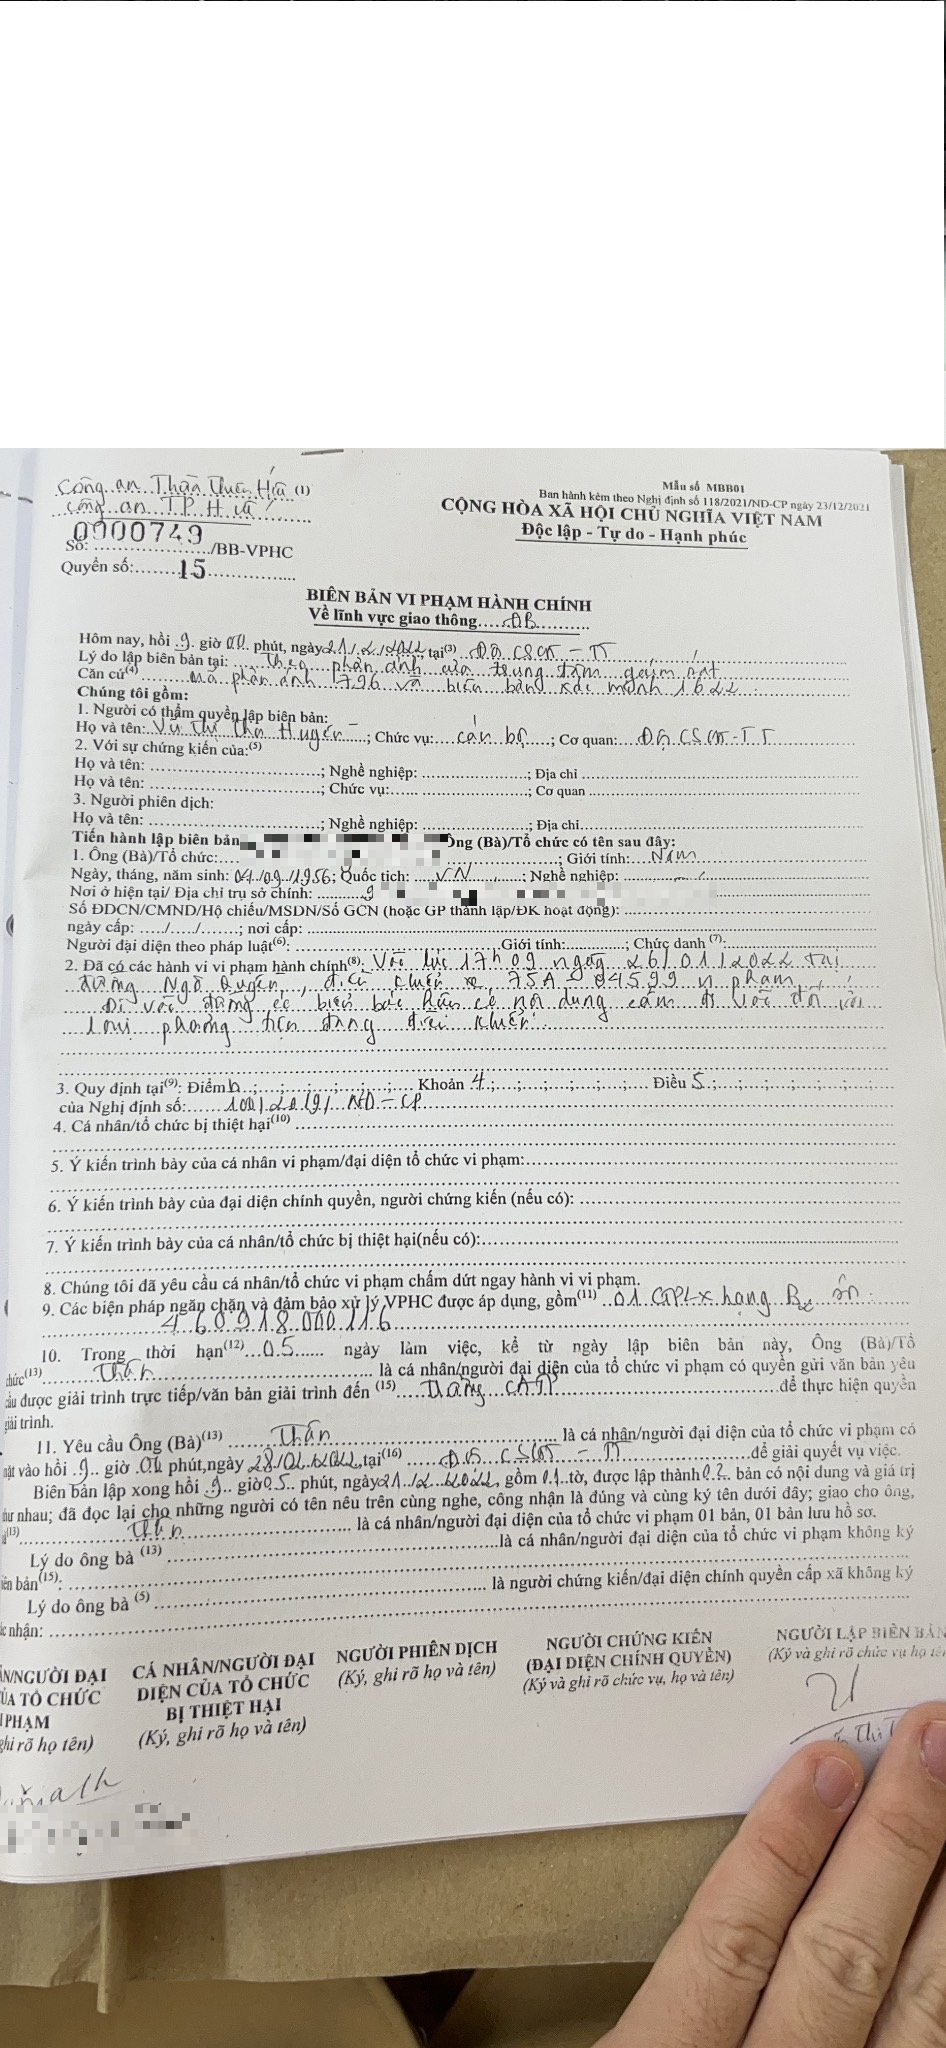 Công an Thừa Thiên Huế (1)
Công an T.P Huế
Mẫu số MBB01
Ban hành kèm theo Nghị định số 118/2021/NĐ-CP ngày 23/12/2021
CỘNG HÒA XÃ HỘI CHỦ NGHĨA VIỆT NAM
Độc lập - Tự do - Hạnh phúc
0000749
Số: ...................../BB-VPHC
Quyển số:.......15................
BIÊN BẢN VI PHẠM HÀNH CHÍNH
Về lĩnh vực giao thông.....ĐB..........
Hôm nay, hồi .9. giờ 00. phút, ngày 21/.2./2022, tại(3) ..Đội CSGT - TT
Lý do lập biên bản tại: ... Theo phản ánh của trung tâm giám sát
Căn cứ(4) ...... mã phản ánh 1796 và biên bản xác minh 1622
Chúng tôi gồm:
1. Người có thẩm quyền lập biên bản:
Họ và tên: Vũ Thị Huyền ......; Chức vụ: ... cán bộ ...; Cơ quan: ... Đội CSGT-TT
2. Với sự chứng kiến của:(5)
Họ và tên: ..........................; Nghề nghiệp: ................; Địa chỉ ................
Họ và tên: ..........................; Chức vụ:......................; Cơ quan ................
3. Người phiên dịch:
Họ và tên: ..........................; Nghề nghiệp: ................; Địa chỉ................
Tiến hành lập biên bản Ông (Bà)/Tổ chức có tên sau đây:
1. Ông (Bà)/Tổ chức:.... ................; Giới tính:... Nam
Ngày, tháng, năm sinh: 04/09/1956; Quốc tịch: ...VN......; Nghề nghiệp: ................
Nơi ở hiện tại/ Địa chỉ trụ sở chính: .........9
Số ĐDCN/CMND/Hộ chiếu/MSDN/Số GCN (hoặc GP thành lập/ĐK hoạt động): ................
ngày cấp: ...../...../......; nơi cấp:................
Người đại diện theo pháp luật(6): ................Giới tính:............; Chức danh (7):................
2. Đã có các hành vi vi phạm hành chính(8): Vào lúc 17h09 ngày 26/01/2022 tại
đường Ngô Quyền, điều khiển xe 75A-04599 vi phạm
Đi vào đường có biển báo hiệu có nội dung cấm đi vào đối với
loại phương tiện đang điều khiển.
3. Quy định tại(9): Điểm b ..;....;....;....;....;.... Khoản 4.;....;....;....;....;.... Điều 5.;....;....;....;....
của Nghị định số:...... 100/2019/ NĐ-CP
4. Cá nhân/tổ chức bị thiệt hại(10) ................
5. Ý kiến trình bày của cá nhân vi phạm/đại diện tổ chức vi phạm:................
6. Ý kiến trình bày của đại diện chính quyền, người chứng kiến (nếu có): ................
7. Ý kiến trình bày của cá nhân/tổ chức bị thiệt hại(nếu có):................
8. Chúng tôi đã yêu cầu cá nhân/tổ chức vi phạm chấm dứt ngay hành vi vi phạm.
9. Các biện pháp ngăn chặn và đảm bảo xử lý VPHC được áp dụng, gồm(11) ..01 GPLX hạng B2
460918000116
10. Trong thời hạn(12)...05...... ngày làm việc, kể từ ngày lập biên bản này, Ông (Bà)/Tổ
chức(13)................ là cá nhân/người đại diện của tổ chức vi phạm có quyền gửi văn bản yêu
cầu được giải trình trực tiếp/văn bản giải trình đến (15)................để thực hiện quyền
giải trình.
11. Yêu cầu Ông (Bà)(13) ................ là cá nhân/người đại diện của tổ chức vi phạm có
mặt vào hồi .9.. giờ .00 phút,ngày 28/02/2022, tại(16) ...... Đội CSGT - TT................để giải quyết vụ việc.
Biên bản lập xong hồi .9.. giờ 05.. phút, ngày 21../2.../2022, gồm 01.tờ, được lập thành 02.. bản có nội dung và giá trị
như nhau; đã đọc lại cho những người có tên nêu trên cùng nghe, công nhận là đúng và cùng ký tên dưới đây; giao cho ông,
bà(13)................ là cá nhân/người đại diện của tổ chức vi phạm 01 bản, 01 bản lưu hồ sơ.
Lý do ông bà (13) ................là cá nhân/người đại diện của tổ chức vi phạm không ký
biên bản(15): ................
Lý do ông bà (5) ................ là người chứng kiến/đại diện chính quyền cấp xã không ký
xác nhận: ................
ÂN/NGƯỜI ĐẠI
CỦA TỔ CHỨC
I PHẠM
ghi rõ họ tên)
CÁ NHÂN/NGƯỜI ĐẠI
DIỆN CỦA TỔ CHỨC
BỊ THIỆT HẠI
(Ký, ghi rõ họ và tên)
NGƯỜI PHIÊN DỊCH
(Ký, ghi rõ họ và tên)
NGƯỜI CHỨNG KIẾN
(ĐẠI DIỆN CHÍNH QUYỀN)
(Ký và ghi rõ chức vụ, họ và tên)
NGƯỜI LẬP BIÊN BẢN
(Ký và ghi rõ chức vụ họ tên